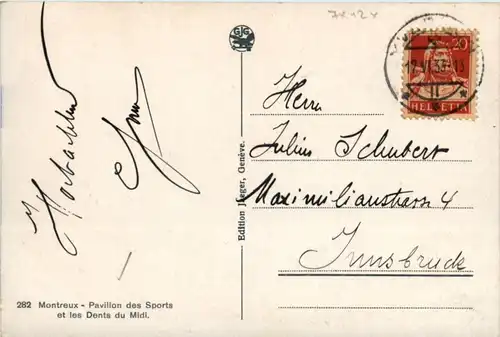 Hochachtend
282 Montreux - Pavillon des Sports
et les Dents du Midi.
Edition Jaeger, Genève.
20
HELVETIA
Herrn
Julius Schubert
Maximilianstrasse 4
Innsbruck